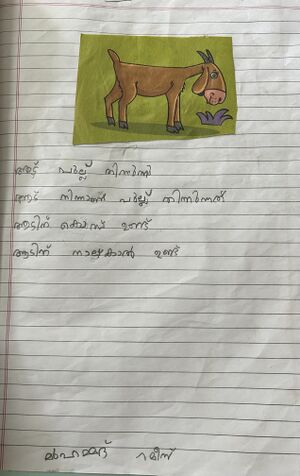 ആട് പുല്ല് തിന്നുന്നു
ആട് നിന്നാണ് പുല്ല് തിന്നുന്നത്
ആടിന് കൊമ്പ് ഉണ്ട്
ആടിന് നാലുകാൽ ഉണ്ട്
മുഹമ്മദ് റമീസ്